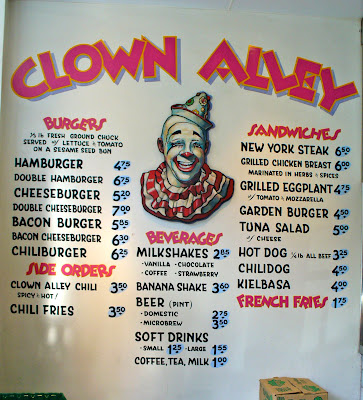 CLOWN ALLEY
BURGERS
⅓ lb FRESH GROUND CHUCK
SERVED w/ LETTUCE & TOMATO
ON A SESAME SEED BUN
HAMBURGER 4.75
DOUBLE HAMBURGER 6.75
CHEESEBURGER 5.20
DOUBLE CHEESEBURGER 7.00
BACON BURGER 5.85
BACON CHEESEBURGER 6.30
CHILIBURGER 6.25
SIDE ORDERS
CLOWN ALLEY CHILI 3.50
SPICY & HOT!
CHILI FRIES 3.50
BEVERAGES
MILKSHAKES 2.85
-VANILLA -CHOCOLATE
-COFFEE -STRAWBERRY
BANANA SHAKE 3.60
BEER (PINT)
-DOMESTIC 2.75
-MICROBREW 3.50
SOFT DRINKS
-SMALL 1.25 -LARGE 1.55
COFFEE, TEA, MILK 1.00
SANDWICHES
NEW YORK STEAK 6.50
GRILLED CHICKEN BREAST 6.00
MARINATED IN HERBS & SPICES
GRILLED EGGPLANT 4.75
w/ TOMATO & MOZZARELLA
GARDEN BURGER 4.50
TUNA SALAD 5.00
w/ CHEESE
HOT DOG ¼ lb ALL BEEF 3.25
CHILIDOG 4.50
KIELBASA 4.00
FRENCH FRIES 1.75